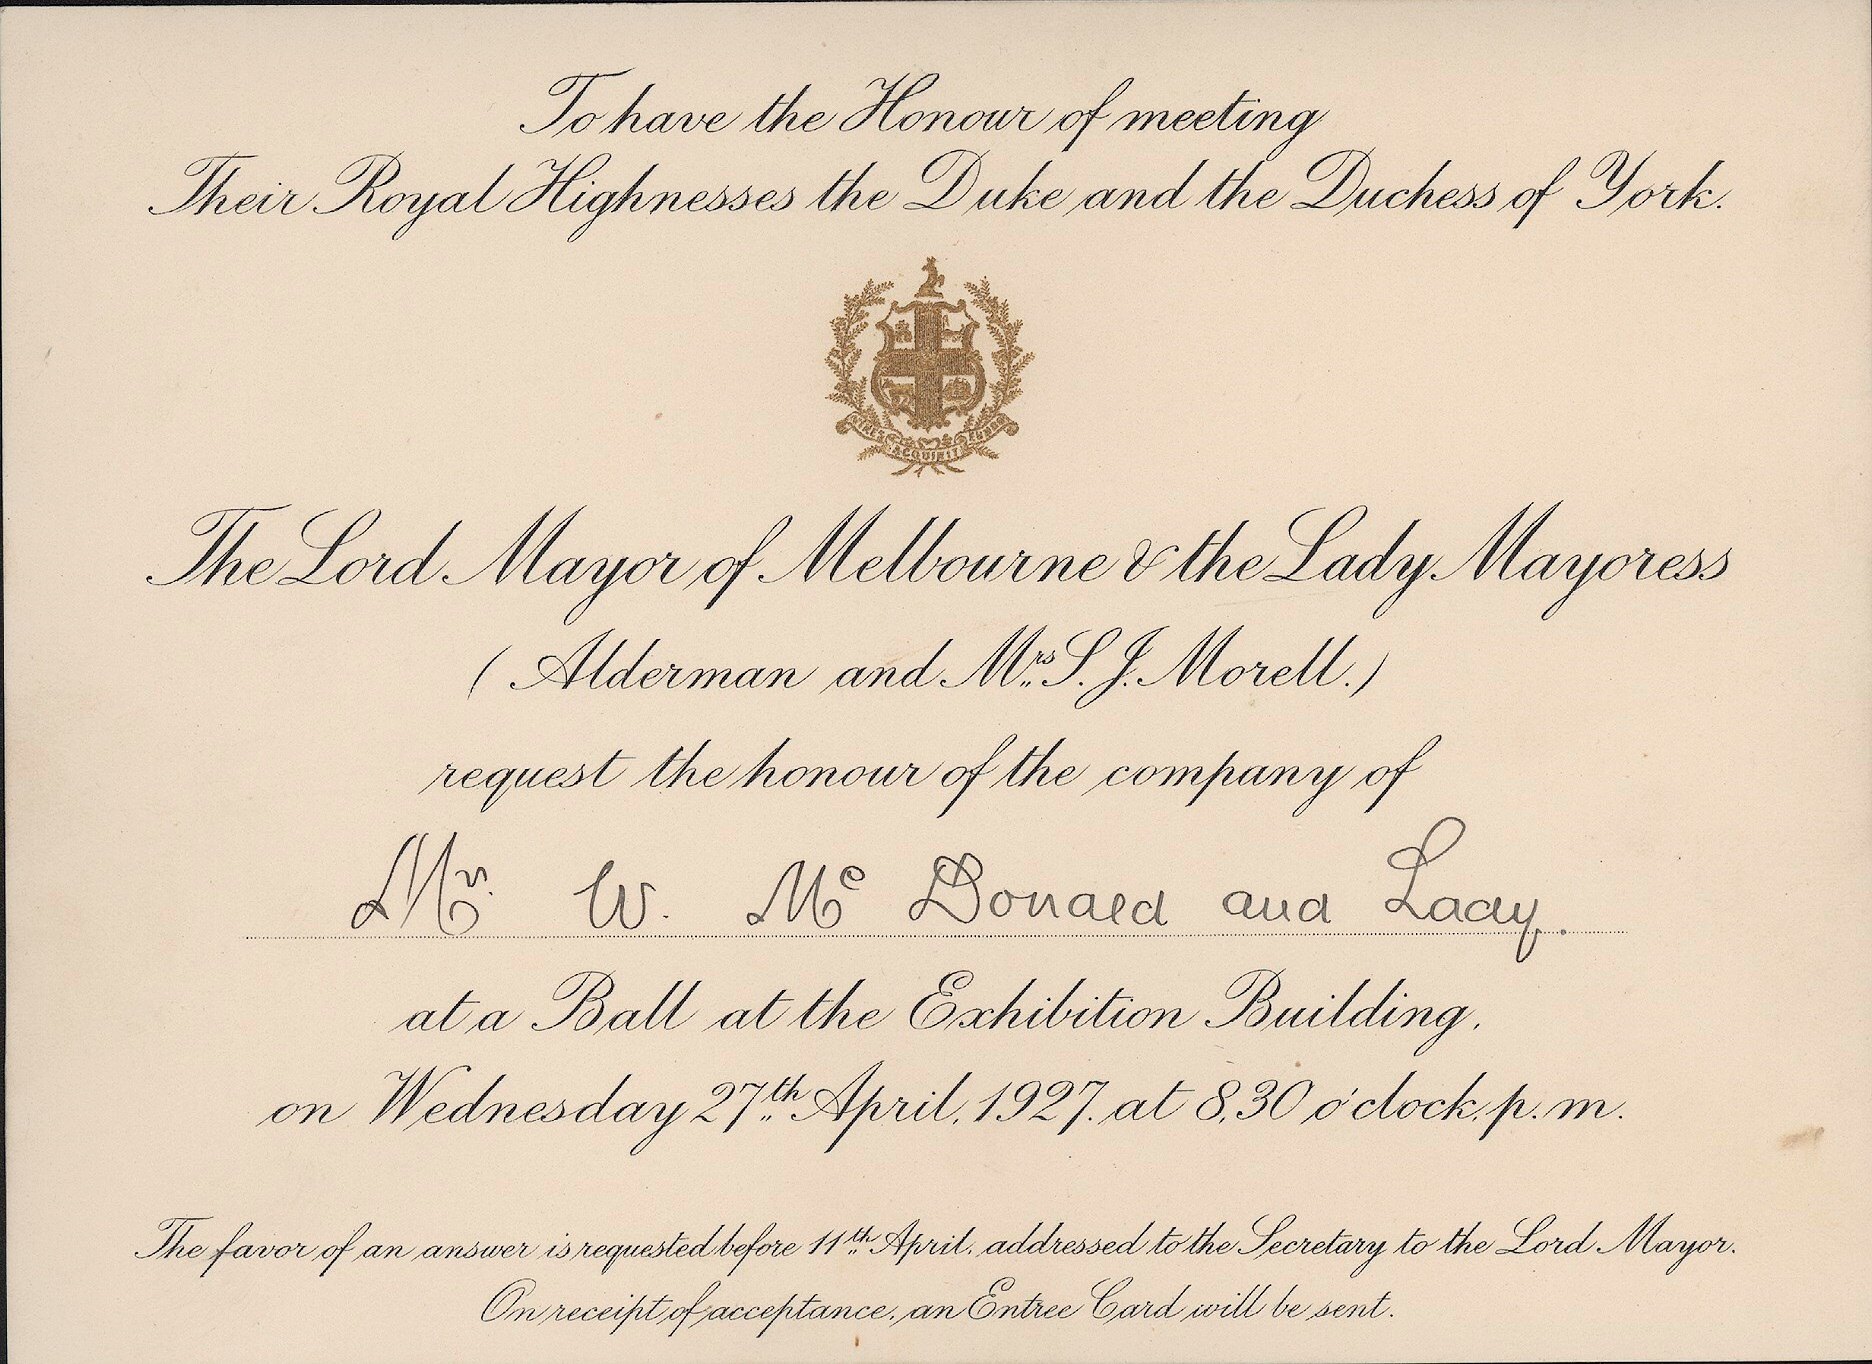 To have the Honour of meeting
Their Royal Highnesses the Duke and the Duchess of York.
VIRES ACQUIRIT EUNDO
The Lord Mayor of Melbourne & the Lady Mayoress
(Alderman and Mrs. S. J. Morell.)
request the honour of the company of
Mr. W. Mc Donald and Lady.
at a Ball at the Exhibition Building,
on Wednesday 27th April, 1927. at 8,30 o'clock. p. m.
The favor of an answer is requested before 11th April, addressed to the Secretary to the Lord Mayor.
On receipt of acceptance, an Entree Card will be sent.